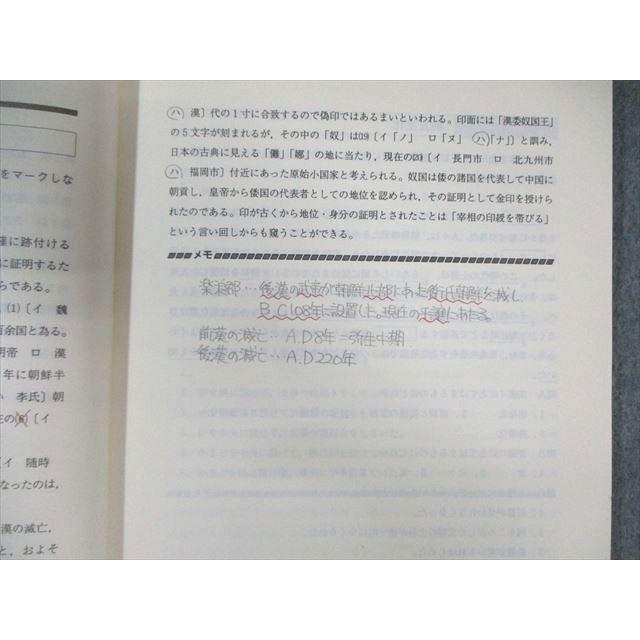 をマークしな
権に跡付ける
に証明するた
らである。
(1)〔イ　魏
百余国と為る。
明帝　ロ　漢
年に朝鮮半
李氏〕朝
在の(8)〔イ
〔イ　随時
なったのは,
漢の滅亡,
と, およそ
㋩ 漢〕代の1寸に合致するので偽印ではあるまいといわれる。印面には「漢委奴国王」
の5文字が刻まれるが, その中の「奴」は(19)〔イ「ノ」　ロ「ヌ」　㋩「ナ」〕と訓み,
日本の古典に見える「儺」「娜」の地に当たり, 現在の(20)〔イ　長門市　ロ　北九州市
㋩　福岡市〕付近にあった原始小国家と考えられる。奴国は倭の諸国を代表して中国に
朝貢し, 皇帝から倭国の代表者としての地位を認められ, その証明として金印を授けら
れたのである。印が古くから地位・身分の証明とされたことは「宰相の印綬を帯びる」
という言い回しからも窺うことができる。
メモ
楽浪郡…後漢の武帝が朝鮮北部にあった衛氏朝鮮を滅し
B.C108年に設置した。現在の平壌にあたる。
前漢の滅亡…A.D8年=弥生中期
後漢の滅亡…A.D220年